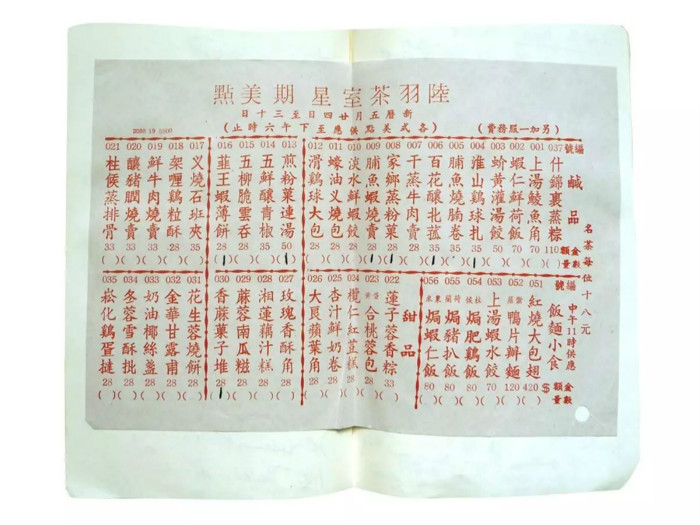 陸羽茶室星期美點
新曆五月廿四日至三十日
(另加一服務費)
(各式美點供應至下午六時止)
名茶每位十八元
編號 鹹品 金額 數量
037 什錦裹蒸粽 110
001 上湯鯪魚角 70
002 蝦仁鮮荷飯 70
003 蚧黄灌湯餃 50
004 淮山鷄球扎 35 1
005 脯魚燒腩卷 35
006 百花釀北菰 35
007 干蒸牛肉賣 28
008 家鄉蒸粉菓 28 1
009 脯魚蝦燒賣 28 1
010 淡水鮮蝦餃 28
011 蠔油叉燒包 28
012 滑鷄球大包 28
013 煎粉菓連湯 50 1
014 五鮮釀青椒 35
015 五柳脆雲吞 28
016 韮王蝦薄餅 28 1
017 义燒石班夾 35
018 架喱鷄粒酥 28
019 鮮牛肉燒賣 28
020 釀豬膶燒賣 33
021 柱侯蒸排骨 33
編號 飯麵小食 中午11時供應 金額 數量
051 紅燒大包翅 $420
052 鴨片辦麵 120
053 上湯蝦水餃 70
054 焗肥鷄飯 80
055 焗豬扒飯 80
056 焗蝦仁飯 80
甜品
022 蓮子蓉香粽 33
023 合桃蓉包 28
024 欖仁紅荳糕 28
025 杏汁鮮奶卷 28
026 大艮蘋葉角 28
027 玫瑰香酥角 28
028 湘蓮藕汁糕 28
029 蔴蓉南瓜糍 28
030 香蔴菓子堆 28 1
031 花生蓉燒餅 28
032 金華甘露甫 28
033 奶油椰絲盞 28
034 冬蓉雪酥批 28
035 菘化鷄蛋撻 28